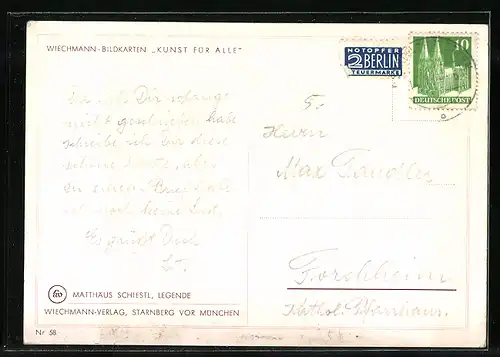 WIECHMANN-BILDKARTEN „KUNST FÜR ALLE"
NOTOPFER
2 BERLIN
STEUERMARKE
10
DEUTSCHE POST
Da ich Dir so lange
nicht geschrieben habe
schreibe ich Dir diese
schöne Karte, aber
zu einem Brief habe
ich noch keine Lust.
Es grüßt Dich
5.-
Herrn
Max
Forchheim
Kathol. Pfarrhaus.
MATTHÄUS SCHIESTL, LEGENDE
WIECHMANN-VERLAG, STARNBERG VOR MÜNCHEN
Nr 58